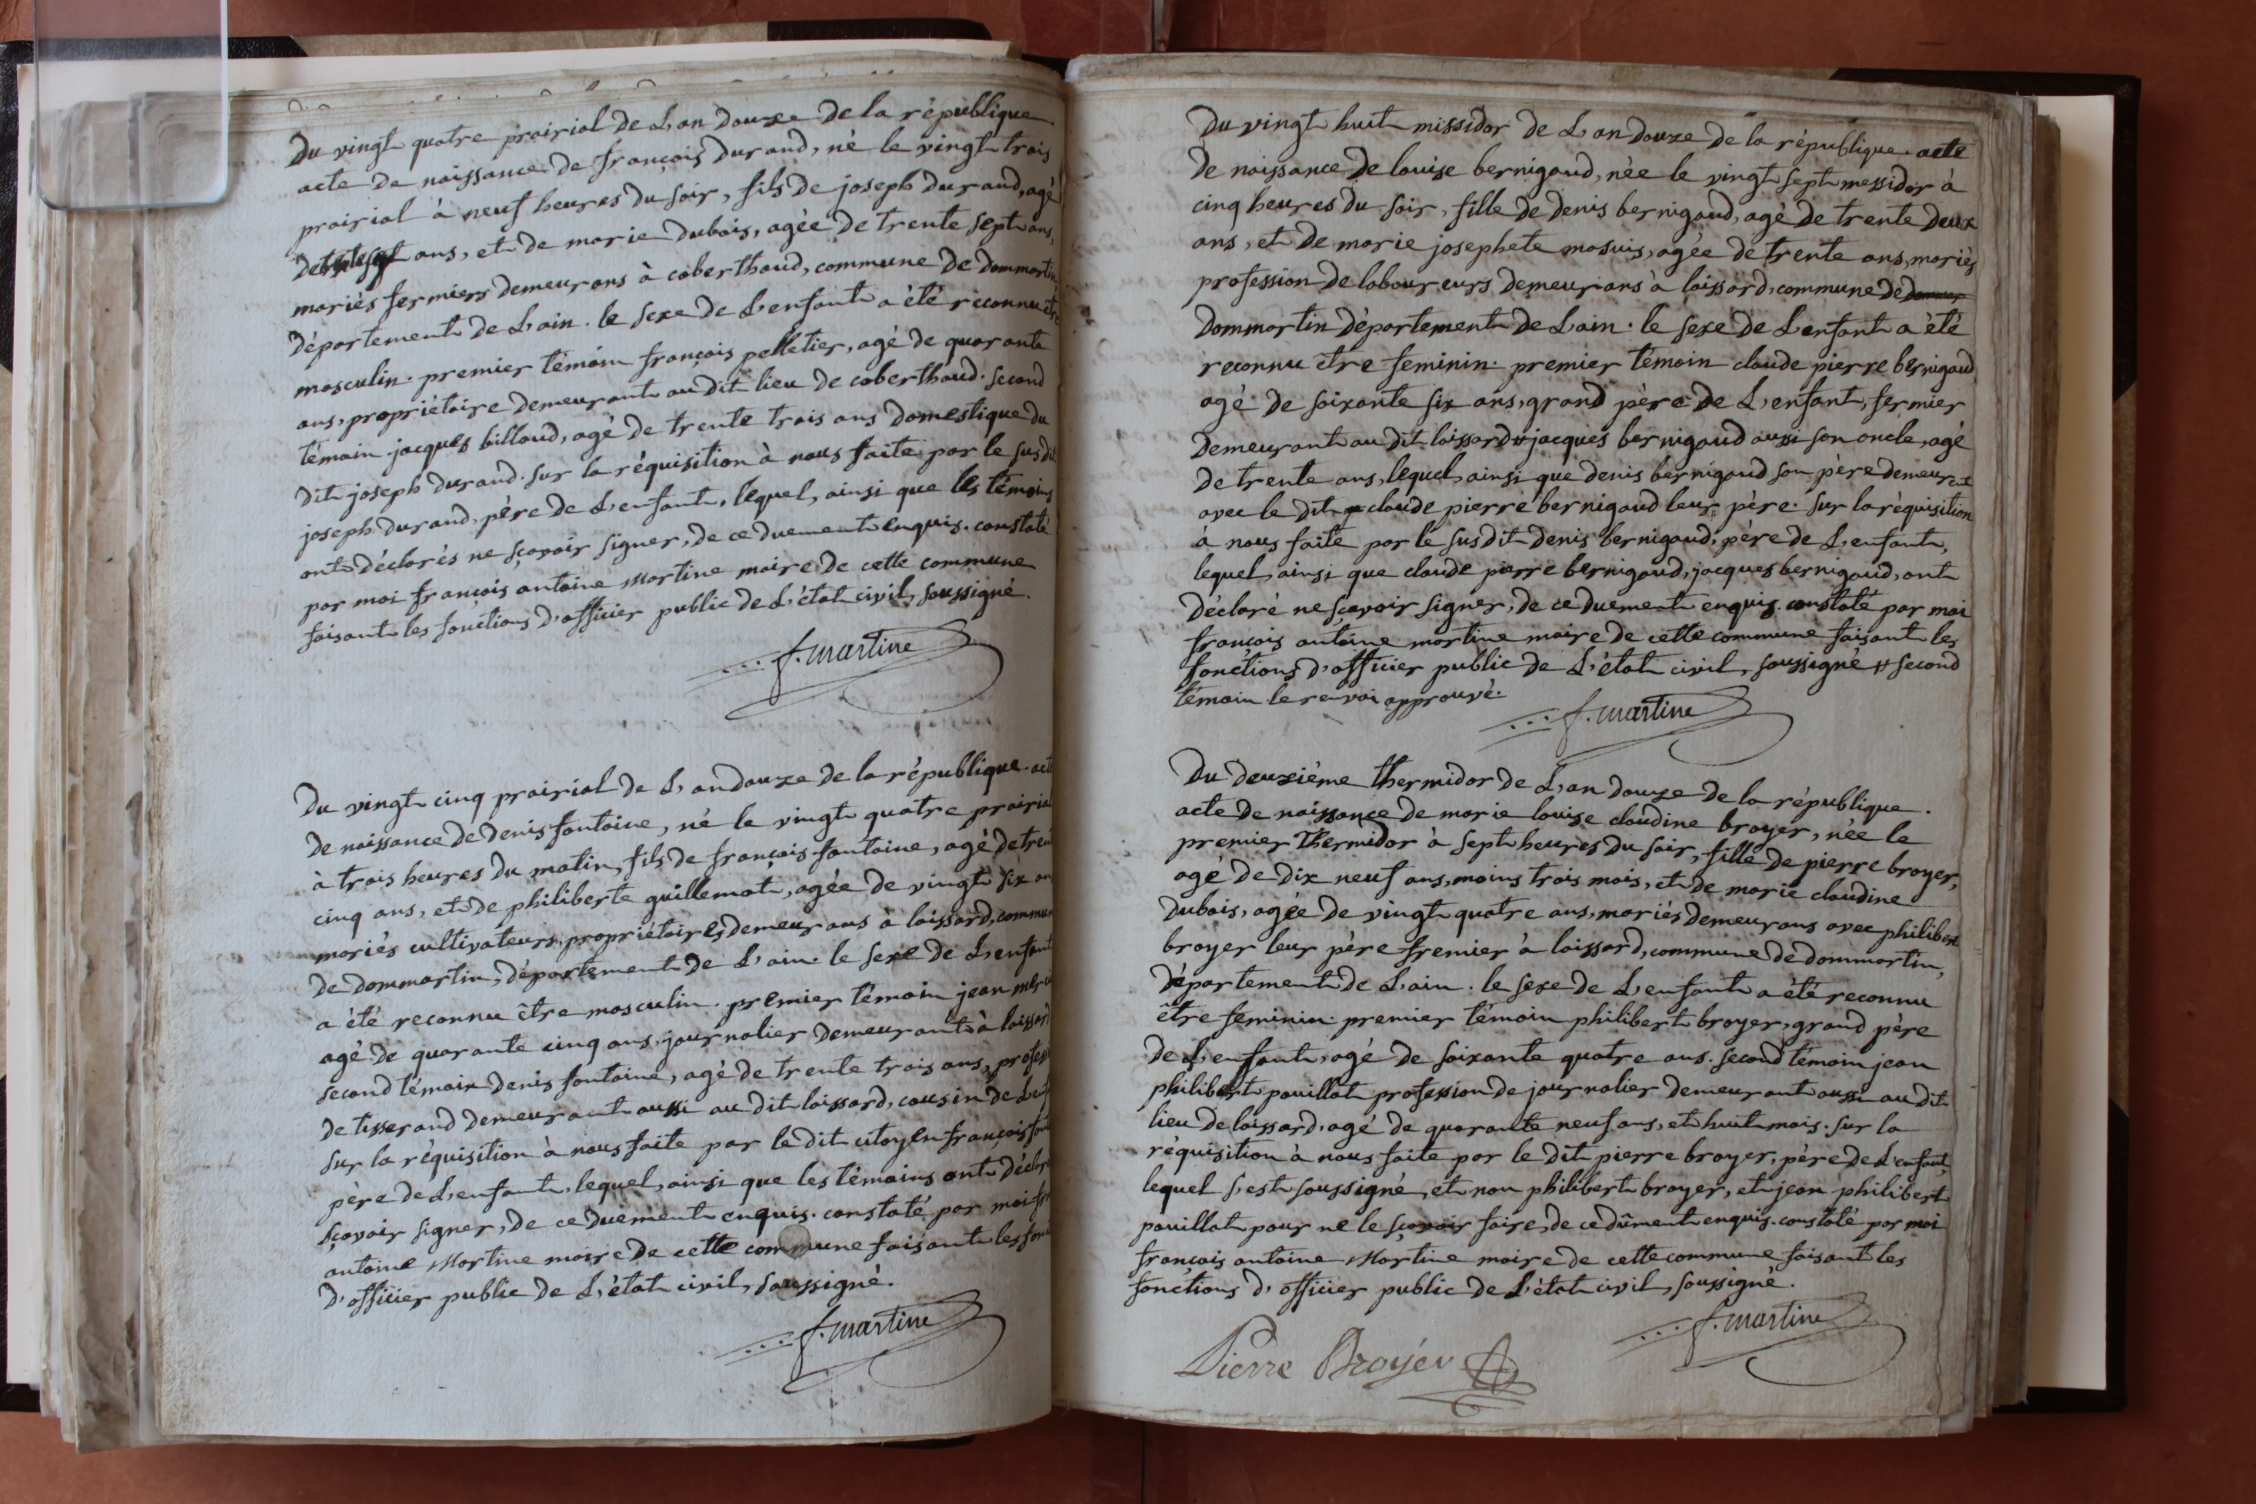 Du vingt quatre prairial de L'an douze de la république
acte de naissance de françois durand, né le vingt trois
prairial à neuf heures du soir, fils de joseph durand, agé
ans, et de marie dubois, agée de trente sept ans,
mariés fermiers demeurans à coberthoud, commune de dommartin,
département de L'ain. le sexe de L'enfant a été reconnu être
masculin. premier témoin françois pelletier, agé de quarante
ans, propriétaire demeurant au dit lieu de coberthoud. second
témoin jacques billoud, agé de trente trois ans domestique du
dit joseph durand. sur la réquisition à nous faite par le susdit
joseph durand, père de L'enfant, lequel, ainsi que les témoins
ont déclarés ne sçavoir signer, de ce duement enquis. constaté
par moi françois antoine Martine maire de cette commune
faisant les fonctions d'officier public de L'état civil, soussigné.
f. martine
Du vingt cinq prairial de L'an douze de la république. acte
de naissance de denis fontaine, né le vingt quatre prairial
à trois heures du matin, fils de françois fontaine, agé de trente
cinq ans, et de philiberte guillemot, agée de vingt six ans
mariés cultivateurs, propriétaires demeurans à loissard, commune
de dommartin, département de L'ain. le sexe de L'enfant
a été reconnu être masculin. premier témoin jean
agé de quarante cinq ans, journalier demeurant à loissard
second témoin denis fontaine, agé de trente trois ans, profession
de tisserand demeurant aussi au dit loissard, cousin de
sur la réquisition à nous faite par le dit citoyen françois
père de L'enfant, lequel, ainsi que les témoins ont déclaré
sçavoir signer, de ce duement enquis. constaté par moi
antoine Martine maire de cette commune faisant les
d'officier public de L'état civil, soussigné.
f. martine
Du vingt huit missidor de L'an douze de la république. acte
de naissance de louise bernigaud, née le vingt sept messidor à
cinq heures du soir, fille de denis bernigaud, agé de trente deux
ans, et de marie josephete masuis, agée de trente ans, mariés
profession de laboureurs demeurans à loissard, commune de
dommartin département de L'ain. le sexe de L'enfant a été
reconnu être feminin. premier témoin claude pierre bernigaud
agé de soixante six ans, grand père de L'enfant, fermier
demeurant au dit loissard # jacques bernigaud aussi son oncle, agé
de trente ans, lequel, ainsi que denis bernigaud son père demeurent
avec le dit claude pierre bernigaud leur père. sur la réquisition
à nous faite par le susdit denis bernigaud, père de L'enfant,
lequel, ainsi que claude pierre bernigaud, jacques bernigaud, ont
déclaré ne sçavoir signer, de ce duement enquis. constaté par moi
françois antoine martine maire de cette commune faisant les
fonctions d'officier public de L'état civil, soussigné # second
témoin le renvoi approuvé.
f. martine
Du deuxième thermidor de L'an douze de la république.
acte de naissance de marie louise claudine broyer, née le
premier Thermidor à sept heures du soir, fille de pierre broyer,
agé de dix neuf ans, moins trois mois, et de marie claudine
dubois, agée de vingt quatre ans, mariés demeurans avec philibert
broyer leur père fremier à loissard, commune de dommartin,
département de L'ain. le sexe de L'enfant a été reconnu
être feminin. premier témoin philibert broyer, grand père
de L'enfant, agé de soixante quatre ans. second témoin jean
philibert pouillat profession de journalier demeurant aussi au dit
lieu de loissard, agé de quarante neuf ans, et huit mois. sur la
réquisition à nous faite par le dit pierre broyer, père de L'enfant,
lequel s'est soussigné, et non philibert broyer, et jean philibert
pouillat pour ne le sçavoir faire, de ce dûment enquis. constaté par moi
françois antoine Martine maire de cette commune faisant les
fonctions d'officier public de L'état civil, soussigné.
f. martine
Pierre Broyer